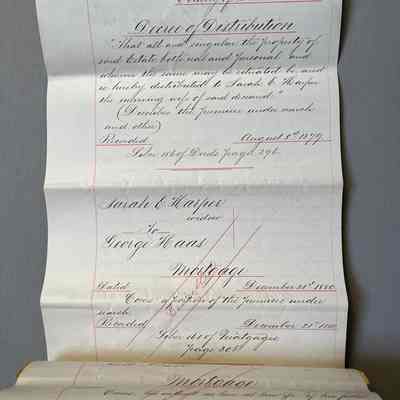 Decree of Distribution
"That all and singular the property of
said Estate both real and personal and
wherever the same may be situated be and
is hereby distributed to Sarah E Harper
the surviving wife of said deceased."
(Describes the Premises under search
and other)
Recorded August 5th 1879
Liber 166 of Deeds page 296
Sarah E Harper
widow
To
George Haas
Mortgage
Dated December 21st 1880
Covers a portion of the Premises under
search
Recorded December 21st 1880
Liber 160 of Mortgages
page 308
Mortgage